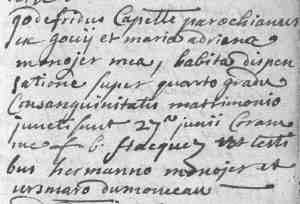 godefridus Capelle parochianus
ex gouij et maria adriana
monojer mea, habita dispen
satione super quarto gradu
Consanguinitatis matrimonio
juncti sunt 27a junii Coram
me f. b. et testi
bus hermanno monojer et
ursmaro dumonceau